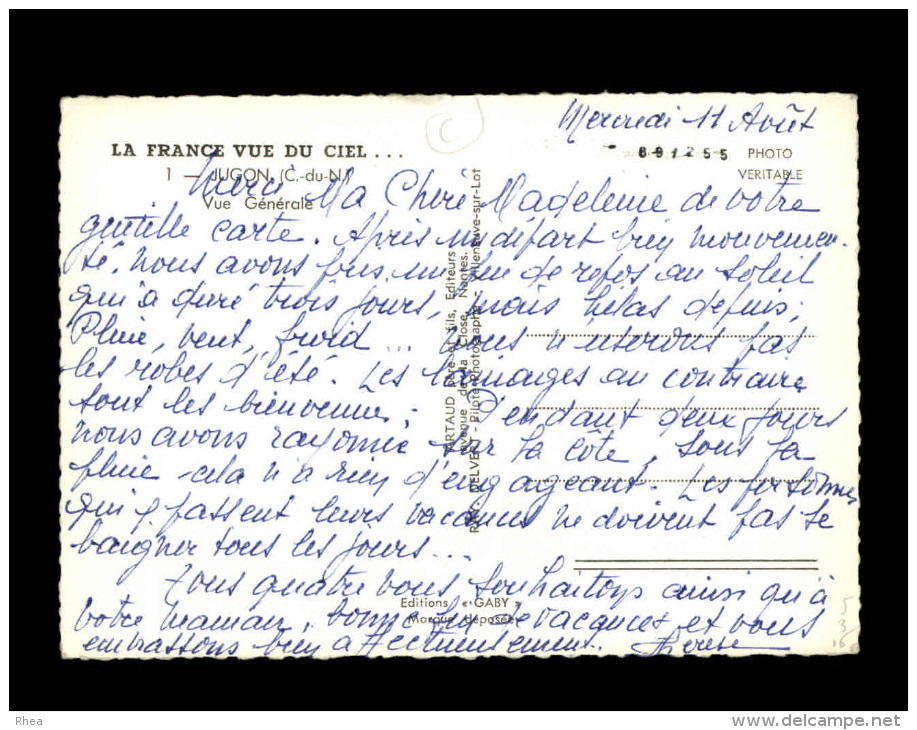 Mercredi 11 Août
LA FRANCE VUE DU CIEL . . .
1 — JUGON (C.-du-N.)
Vue Générale
691255 PHOTO
VERITABLE
Merci Ma Chère Madeleine de votre
gentille carte. Après un départ bien mouvemen-
té. nous avons pris un peu de repos au soleil
qui a duré trois jours, mais hélas depuis:
Pluie, vent, froid ... nous n'userons pas
les robes d'été. Les lainages au contraire
sont les bienvenus. Pendant deux jours
nous avons rayonné sur la côte, sous la
pluie cela n'a rien d'engageant. Les personnes
qui y passent leurs vacances ne doivent pas se
baigner tous les jours...
Tous quatre vous souhaitons ainsi qu'à
votre maman, bonne de vacances et vous
embrassons bien affectueusement. Thérèse
ARTAUD père et fils, Editeurs
avenue de la Close, Nantes.
RAY. DELVERT - Pilote-Photographe - Villeneuve-sur-Lot
Editions « GABY »
Marque déposée
C
5
3
16
Rhea
www.delcampe.net